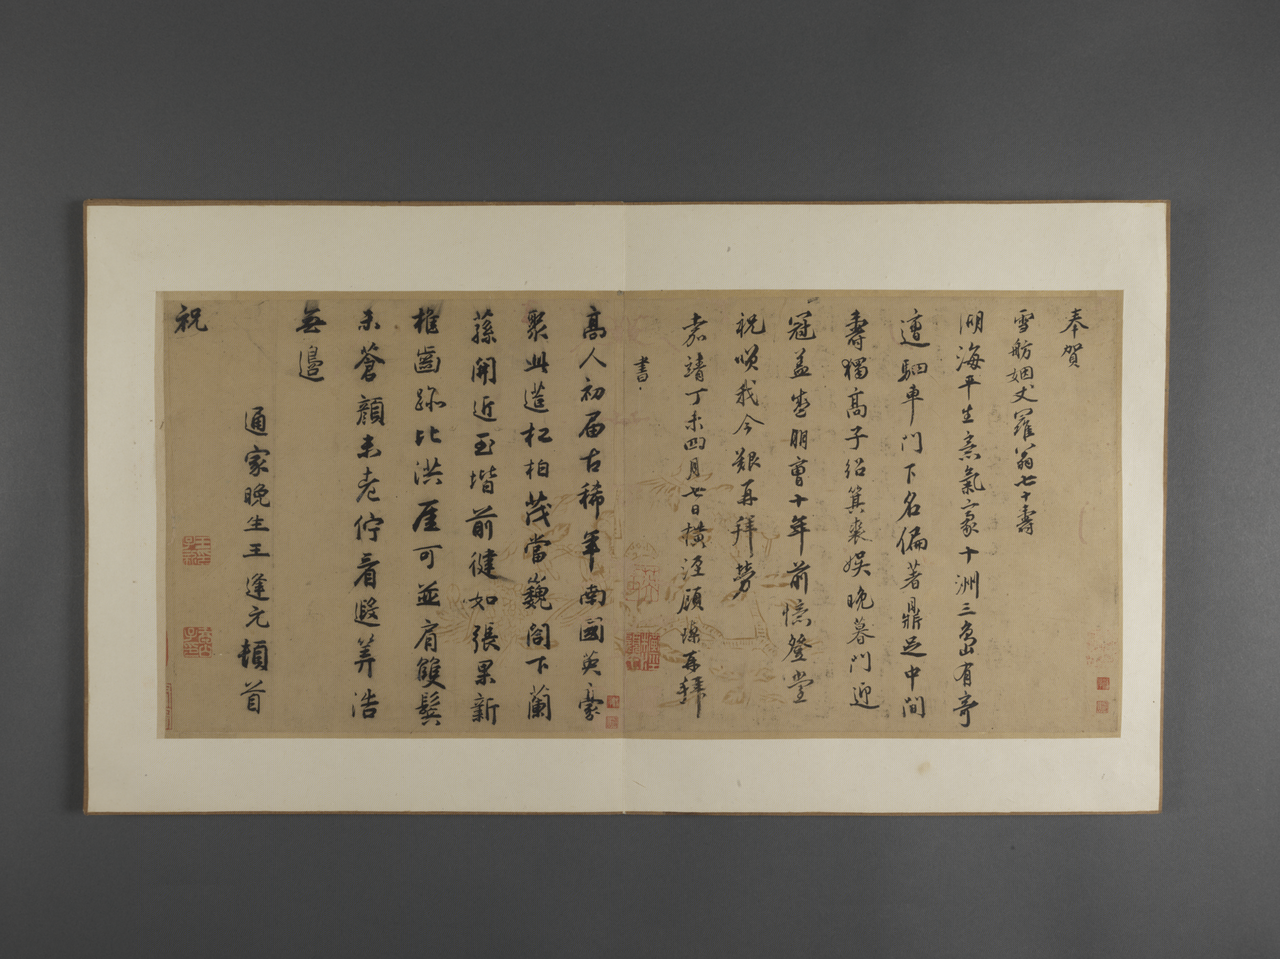 奉賀
雪舫姻丈羅翁七十壽
湖海平生意氣豪十洲三島有奇
遭駟車門下名偏著鼎足中間
壽獨高子紹箕裘娛晚暮門迎
冠蓋盡朋曹十年前憶登堂
祝嘆我今艱再拜勞
嘉靖丁未四月七日橫涇顧瑮再拜
書
高人初届古稀年南國英豪
聚此筵松柏茂當巍閣下蘭
蓀開近玉堦前健如張果新
樵齒跡比洪厓可並肩雙鬢
未蒼顏未老佇看遐筭浩
無邊
通家晚生王逢元頓首
祝